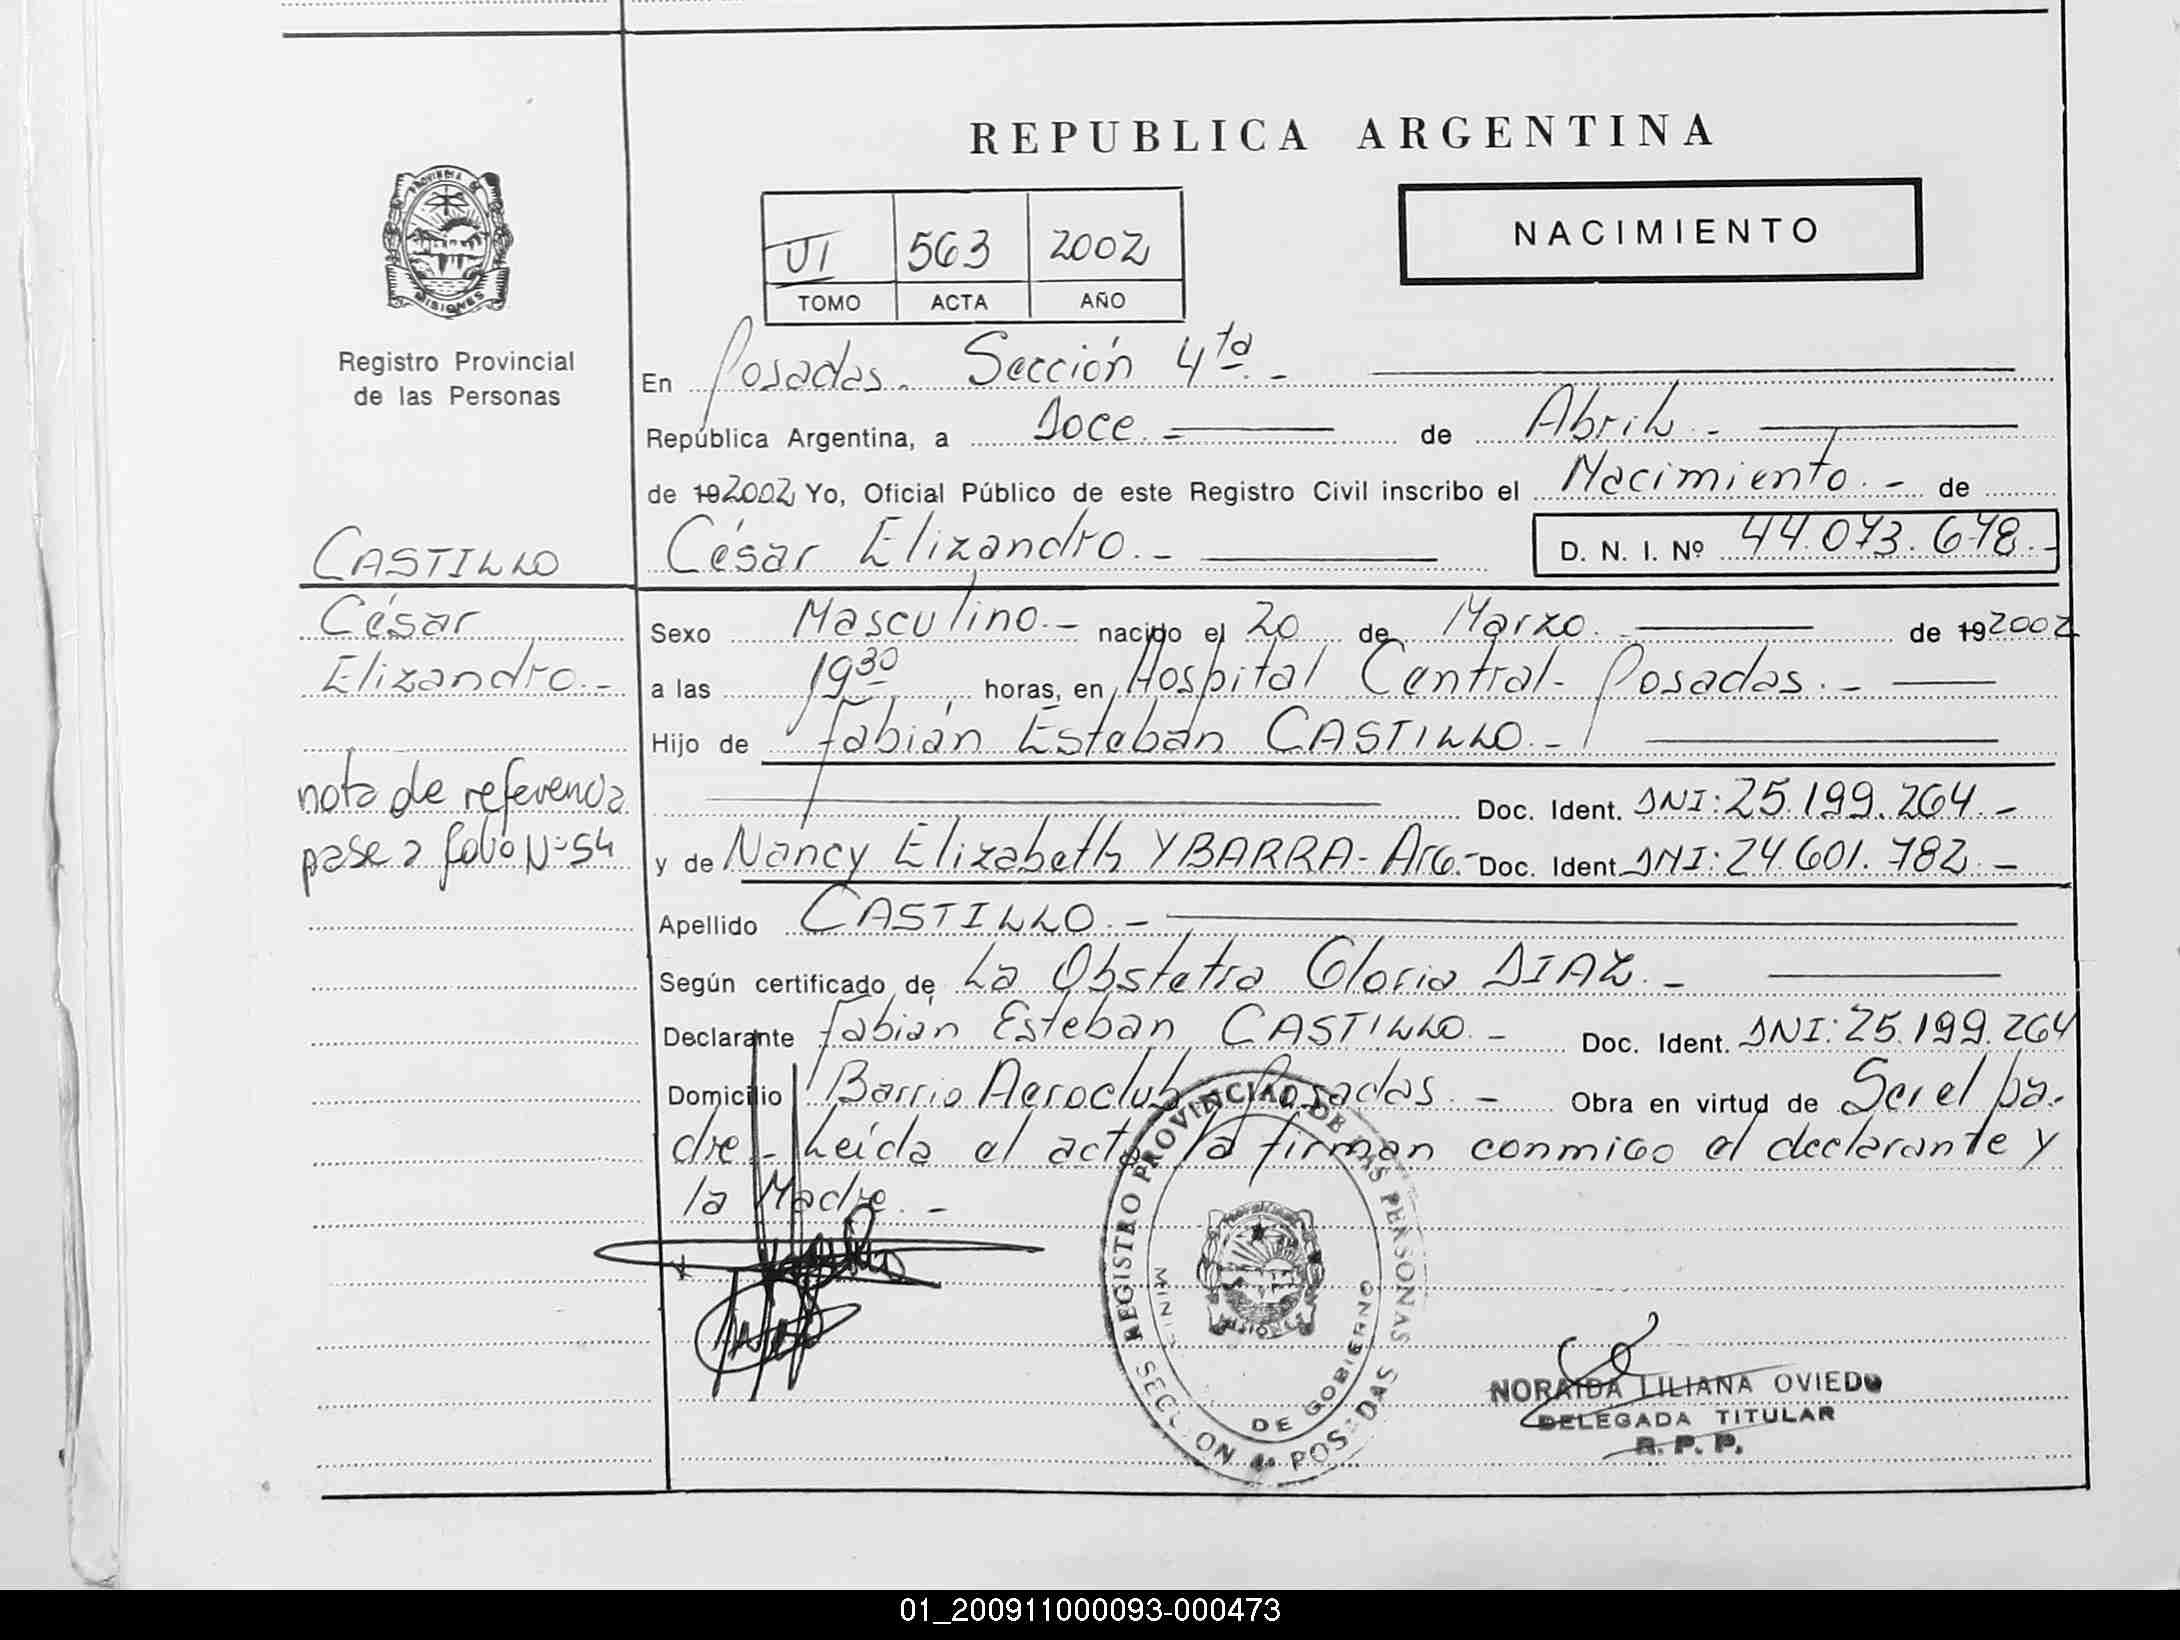 REPUBLICA ARGENTINA
NACIMIENTO
VI 563 2002
TOMO ACTA AÑO
PROVINCIA DE
MISIONES
Registro Provincial
de las Personas
En Posadas. Sección 4ta.-
República Argentina, a Doce.- de Abril.-
de 192002 Yo, Oficial Público de este Registro Civil inscribo el Nacimiento.- de
CASTILLO
César Elizandro.- D. N. I. Nº 44.073.678.-
César
Elizandro.-
Sexo Masculino.- nacido el 20 de Marzo.- de 192002
a las 19 30 horas, en Hospital Central- Posadas.-
Hijo de Fabián Esteban CASTILLO.-
nota de referencia
pase a folio Nº54
Doc. Ident. DNI: 25.199.264.-
y de Nancy Elizabeth YBARRA- Arg.- Doc. Ident. DNI: 24.601.782.-
Apellido CASTILLO.-
Según certificado de La Obstetra Gloria DIAZ.-
Declarante Fabián Esteban CASTILLO.- Doc. Ident. DNI: 25.199.264
Domicilio Barrio Aeroclub Posadas.- Obra en virtud de Ser el pa-
dre.- Leída el acta la firman conmigo el declarante y
la Madre.-
REGISTRO PROVINCIAL DE LAS PERSONAS
DE GOBIERNO
SECCION 4a POSADAS
NORAIDA LILIANA OVIEDO
DELEGADA TITULAR
R. P. P.
01_200911000093-000473